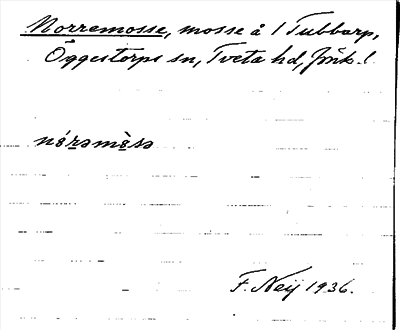 Norremosse, mosse å 1 Tubbarp,
Öggestorps sn, Tveta hd, Jönk. l.
F. Neij 1936.